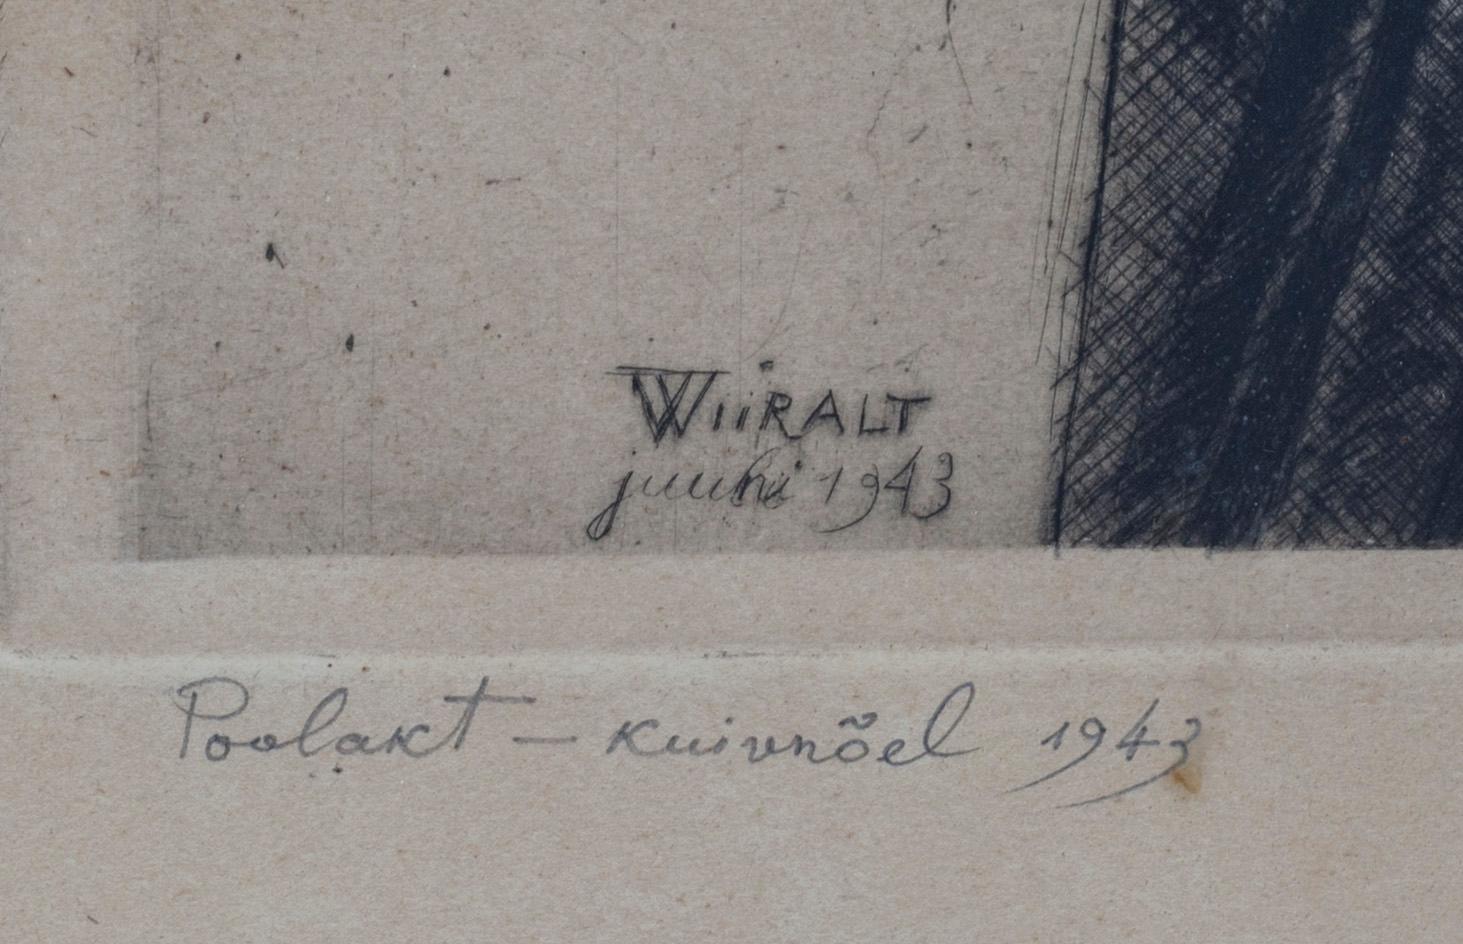 WiiRALT
juuni 1943
Poolakt - kuivnõel 1943